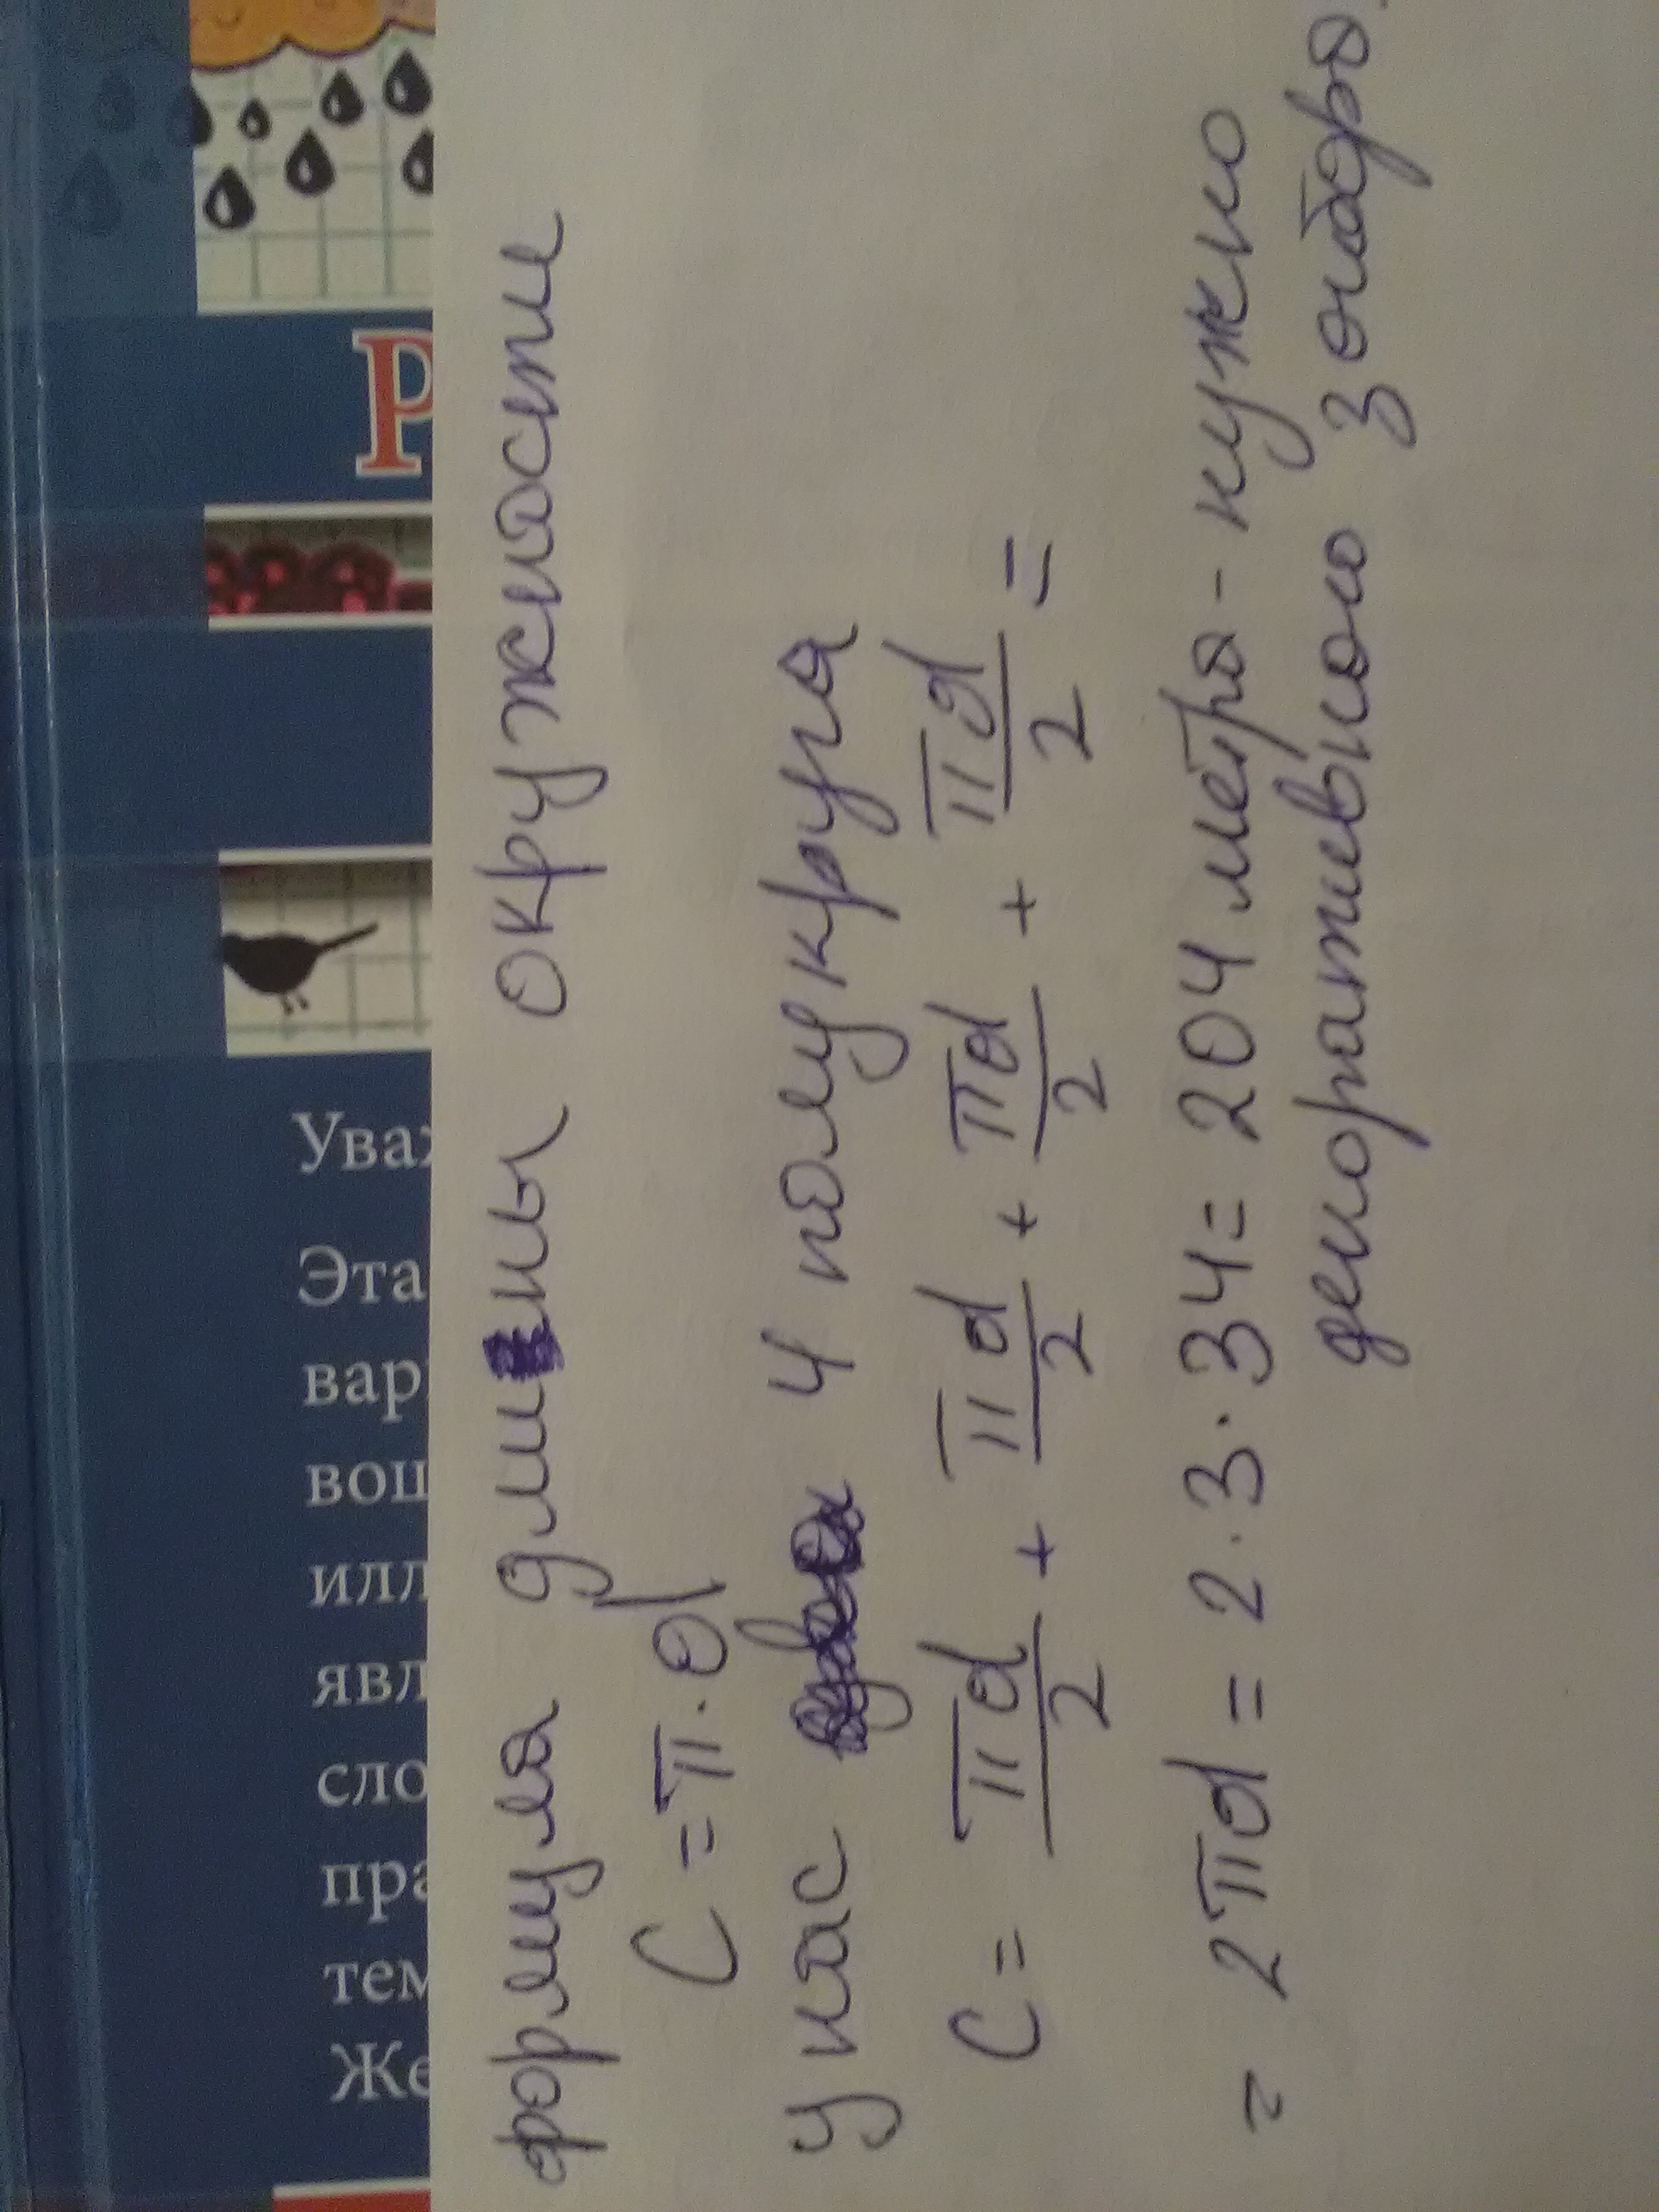 Р
Ува
Эта
вар
вош
илл
явл
сло
пра
тем
Же
формула длины окружности
C = π · d
у нас 4 полукруга
C = πd/2 + πd/2 + πd/2 + πd/2 =
= 2πd = 2 · 3 · 34 = 204 метра - нужно
декоративного забора.